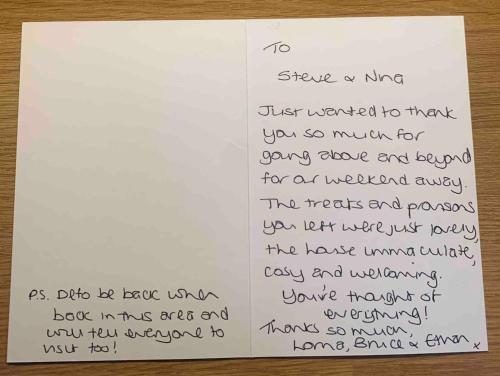 To
Steve & Nina
Just wanted to thank
you so much for
going above and beyond
for our weekend away.
The treats and provisons
you left were just lovely,
the house immaculate,
cosy and welcoming.
You've thought of
everything!
Thanks so much,
Lorna, Bruce & Ethan x
P.S. to be back when
back in this area and
will tell everyone to
visit too!